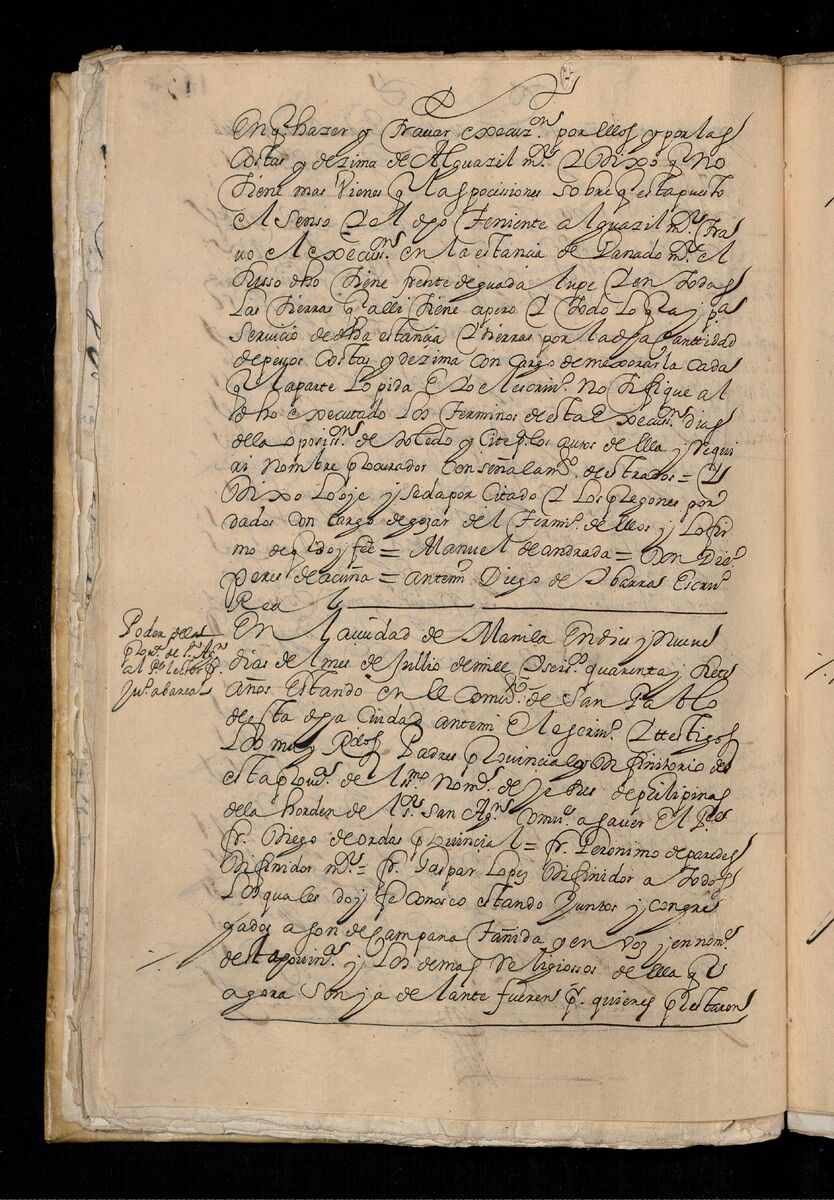 En q hazer y travar execuzon por ellos y por las
Costas y dezima de Alguazil mr Y Dixo q No
tiene mas Vienes q las pociciones sobre q esta puesto
el senso Y el dho teniente alguazil mr tra
uo el execuson en la estancia de Ganado mr el
susso dho tiene frente de guada lupe Y en todas
Las tierras q alli tiene apero Y todo Lo q ay pa
Servicio de dha estancia Y tierras por la dha cantidad
de pessos Costas y dezima con cargo de mexorarla cada
q la parte Lo pida E Yo el escrino Notifique al
dho executado Los terminos desta Execuson dias
della oposison de toledo y Cite p los autos de ella y Requi
ri nombre procurador con señalamo de estrados = Y
Dixo Lo oje y se da por Citado Y Los pregones por
dados con cargo de gozar del termino de ellos y Lo fir
mo de q doy fee = Manuel de andrada = Don Diego
Peres de acuña = antemi Diego de Ybarra Escriuo
Real
Poder de la
prova de s Agn
al Pe lector fr
Juo abarca
En la ciudad de Manila En dies y nueue
dias del mes de Jullio de mill Y seiso quarenta y siete
años Estando en el Conuto de San Pablo
desta dha Ciudad antemi el escriuo Y testigos
Los muy Rdos Padres prouincial y Difinitorio de
esta proua del ssmo nome de Jesus de philipinas
de la horden del sr San Agn Conuie a sauer El Pe
fr. Diego de ordas prouincial = fr. Geronimo de paredes
Difinidor mr = fr. Gaspar Lopez Difinidor a todos
Los quales doy fe conosco estando Juntos y congre
gados a son de campana tañida y en voz y en nome
desta prouina y Los demas Religiossos de ella q
agora son y a delante fueren pr quienes prestaron